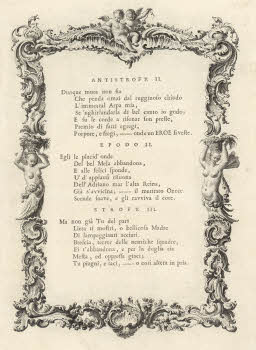 ANTISTROFE II.
Dunque muta non fia
Che penda omai dal rugginoso chiodo
L'immortal Arpa mia,
Se aghirlandarla di bel canto io godo,
E fu le corde a risonar son preste,
Premio di fatti egregi,
Porpore, e fregi, — onde un EROE si veste.
EPODO II.
Egli le placid' onde
Del bel Mela abbandona,
E alle felici sponde,
U' d'applausi risuona
Dell' Adriaco mar l'alta Reina,
Già s'avvicina, — il mattutino
Scende l'aure, e gli ravviva il core.
STROFE III.
Ma non già Tu del pari
Lieta ti mostri, o bellicosa Madre
Di lampeggianti acciari.
Brescia, terror delle nemiche squadre,
Ei t'abbandona, e per lo duolo
Mesta, ed oppressa giaci;
Tu piagni, e taci, — o così altera in pria.